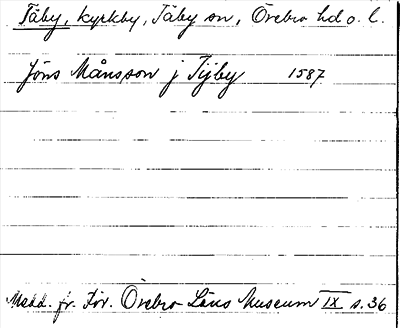 Täby, kyrkby, Täby sn, Örebro hd o. l.
Jöns Månsson j Tijby 1587
Medd. fr. För. Örebro Läns Museum IX s. 36